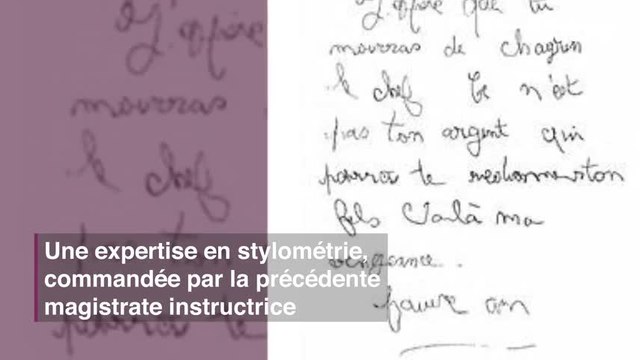 J'espère que tu
mourras de chagrin
le chef Ce n'est
pas ton argent qui
pourra te redonner ton
fils Voilà ma
vengeance.
pauvre con
J'espère
mourras
le chef
Une expertise en stylométrie,
commandée par la précédente
magistrate instructrice
pourra te